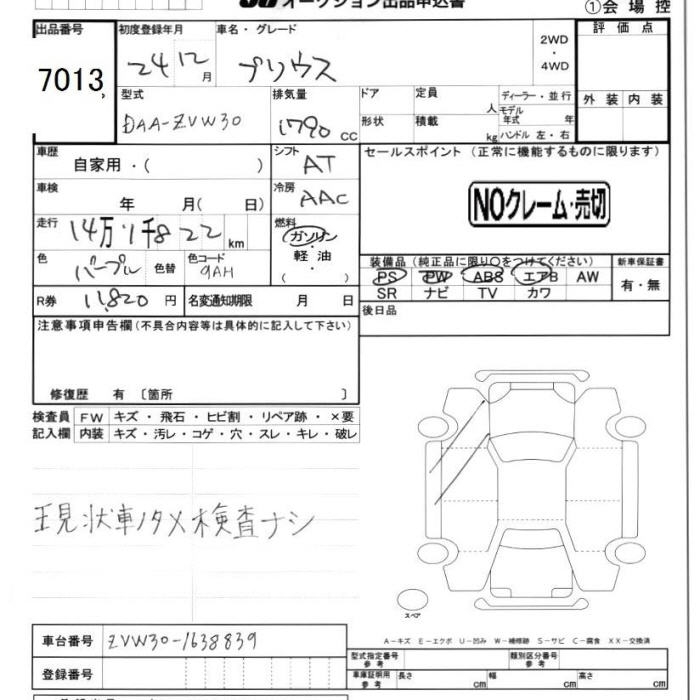 オークション出品申込書
①会場控
出品番号
7013
初度登録年月
24 12月
車名・グレード
プリウス
2WD
・
4WD
評価点
外装 内装
型式
DAA-ZVW30
排気量
1790 CC
ドア
形状
定員 人
積載 kg
ディーラー・並行
モデル年式 年
ハンドル 左・右
車歴
自家用・( )
シフト
AT
セールスポイント (正常に機能するものに限ります)
NOクレーム・売切
車検
年 月( 日)
冷房
AAC
走行
14万1千822km
燃料
ガソリン
・
軽油
( )
色
パープル
色替
色コード
9AH
装備品 (純正品に限り○をつけてください)
PS PW ABS エアB AW
SR ナビ TV カワ
新車保証書
有・無
R券 11,820円
名変通知期限 月 日
後日品
注意事項申告欄(不具合内容等は具体的に記入して下さい)
修復歴 有 〔箇所 〕
検査員 FW キズ・飛石・ヒビ割・リペア跡・×要
記入欄 内装 キズ・汚レ・コゲ・穴・スレ・キレ・破レ
現状車ノタメ検査ナシ
スペア
A-キズ E-エクボ U-凹み W-補修跡 S-サビ C-腐食 XX-交換済
車台番号 ZVW30-1638839
型式指定番号 参考
類別区分番号 参考
登録番号
車庫証明用 参考 長さ cm 幅 cm 高さ cm